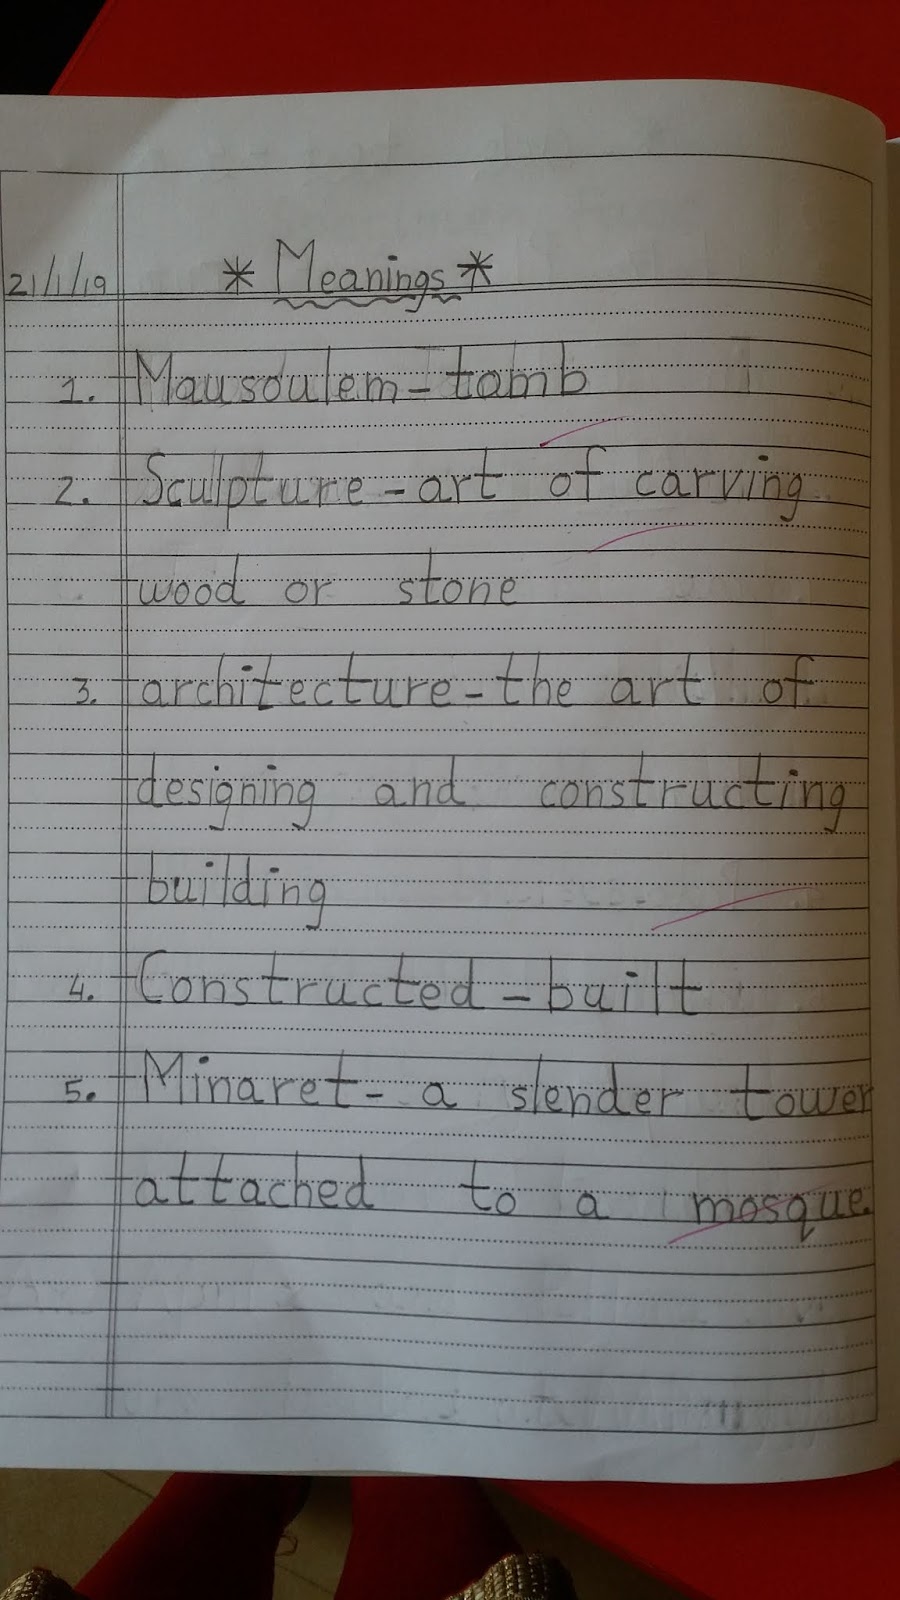 21/1/19 * Meanings *
1. Mausoulem - tomb
2. Sculpture - art of carving
wood or stone
3. architecture - the art of
designing and constructing
building
4. Constructed - built
5. Minaret - a slender tower
attached to a mosque.